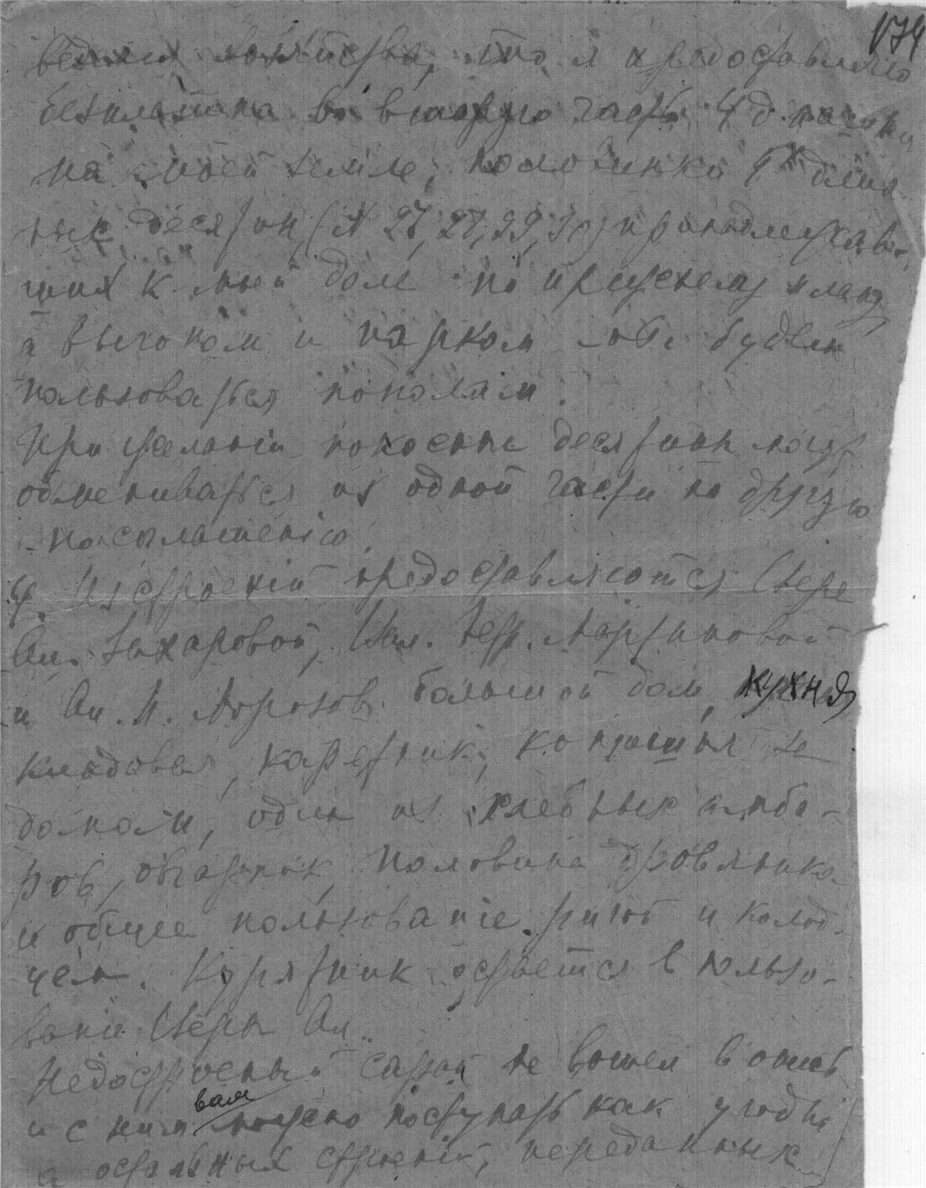 174
хозяйства, что я предоставляю
безплатно во вторую часть 4 д.
на моей земле, половинки 4х
ных десятин (N 27, 29, 30) принадлежав-
ших к моей доле по прежнему плану
а выгоном и парком оба будем
пользоваться пополам.
При желании покосные десятины могут
обмениваться из одной части на другую
по соглашению.
4. Из строений предоставляются Вере
Ал. Захаровой, Мартиновой
и Ал. И. Морозов. большой дом, кухня
кладовая, каретник, конюшня за
домом, один из хлебных амба-
ров, овчарник, половина дровяника
и общее пользованіе ригой и колод-
цем. Курятник остается в пользо-
ваніи Веры Ал.
Недостроеный сарай не вошел в опись
и с ним вам можно поступать как угодно
а остальных строеній, переданных